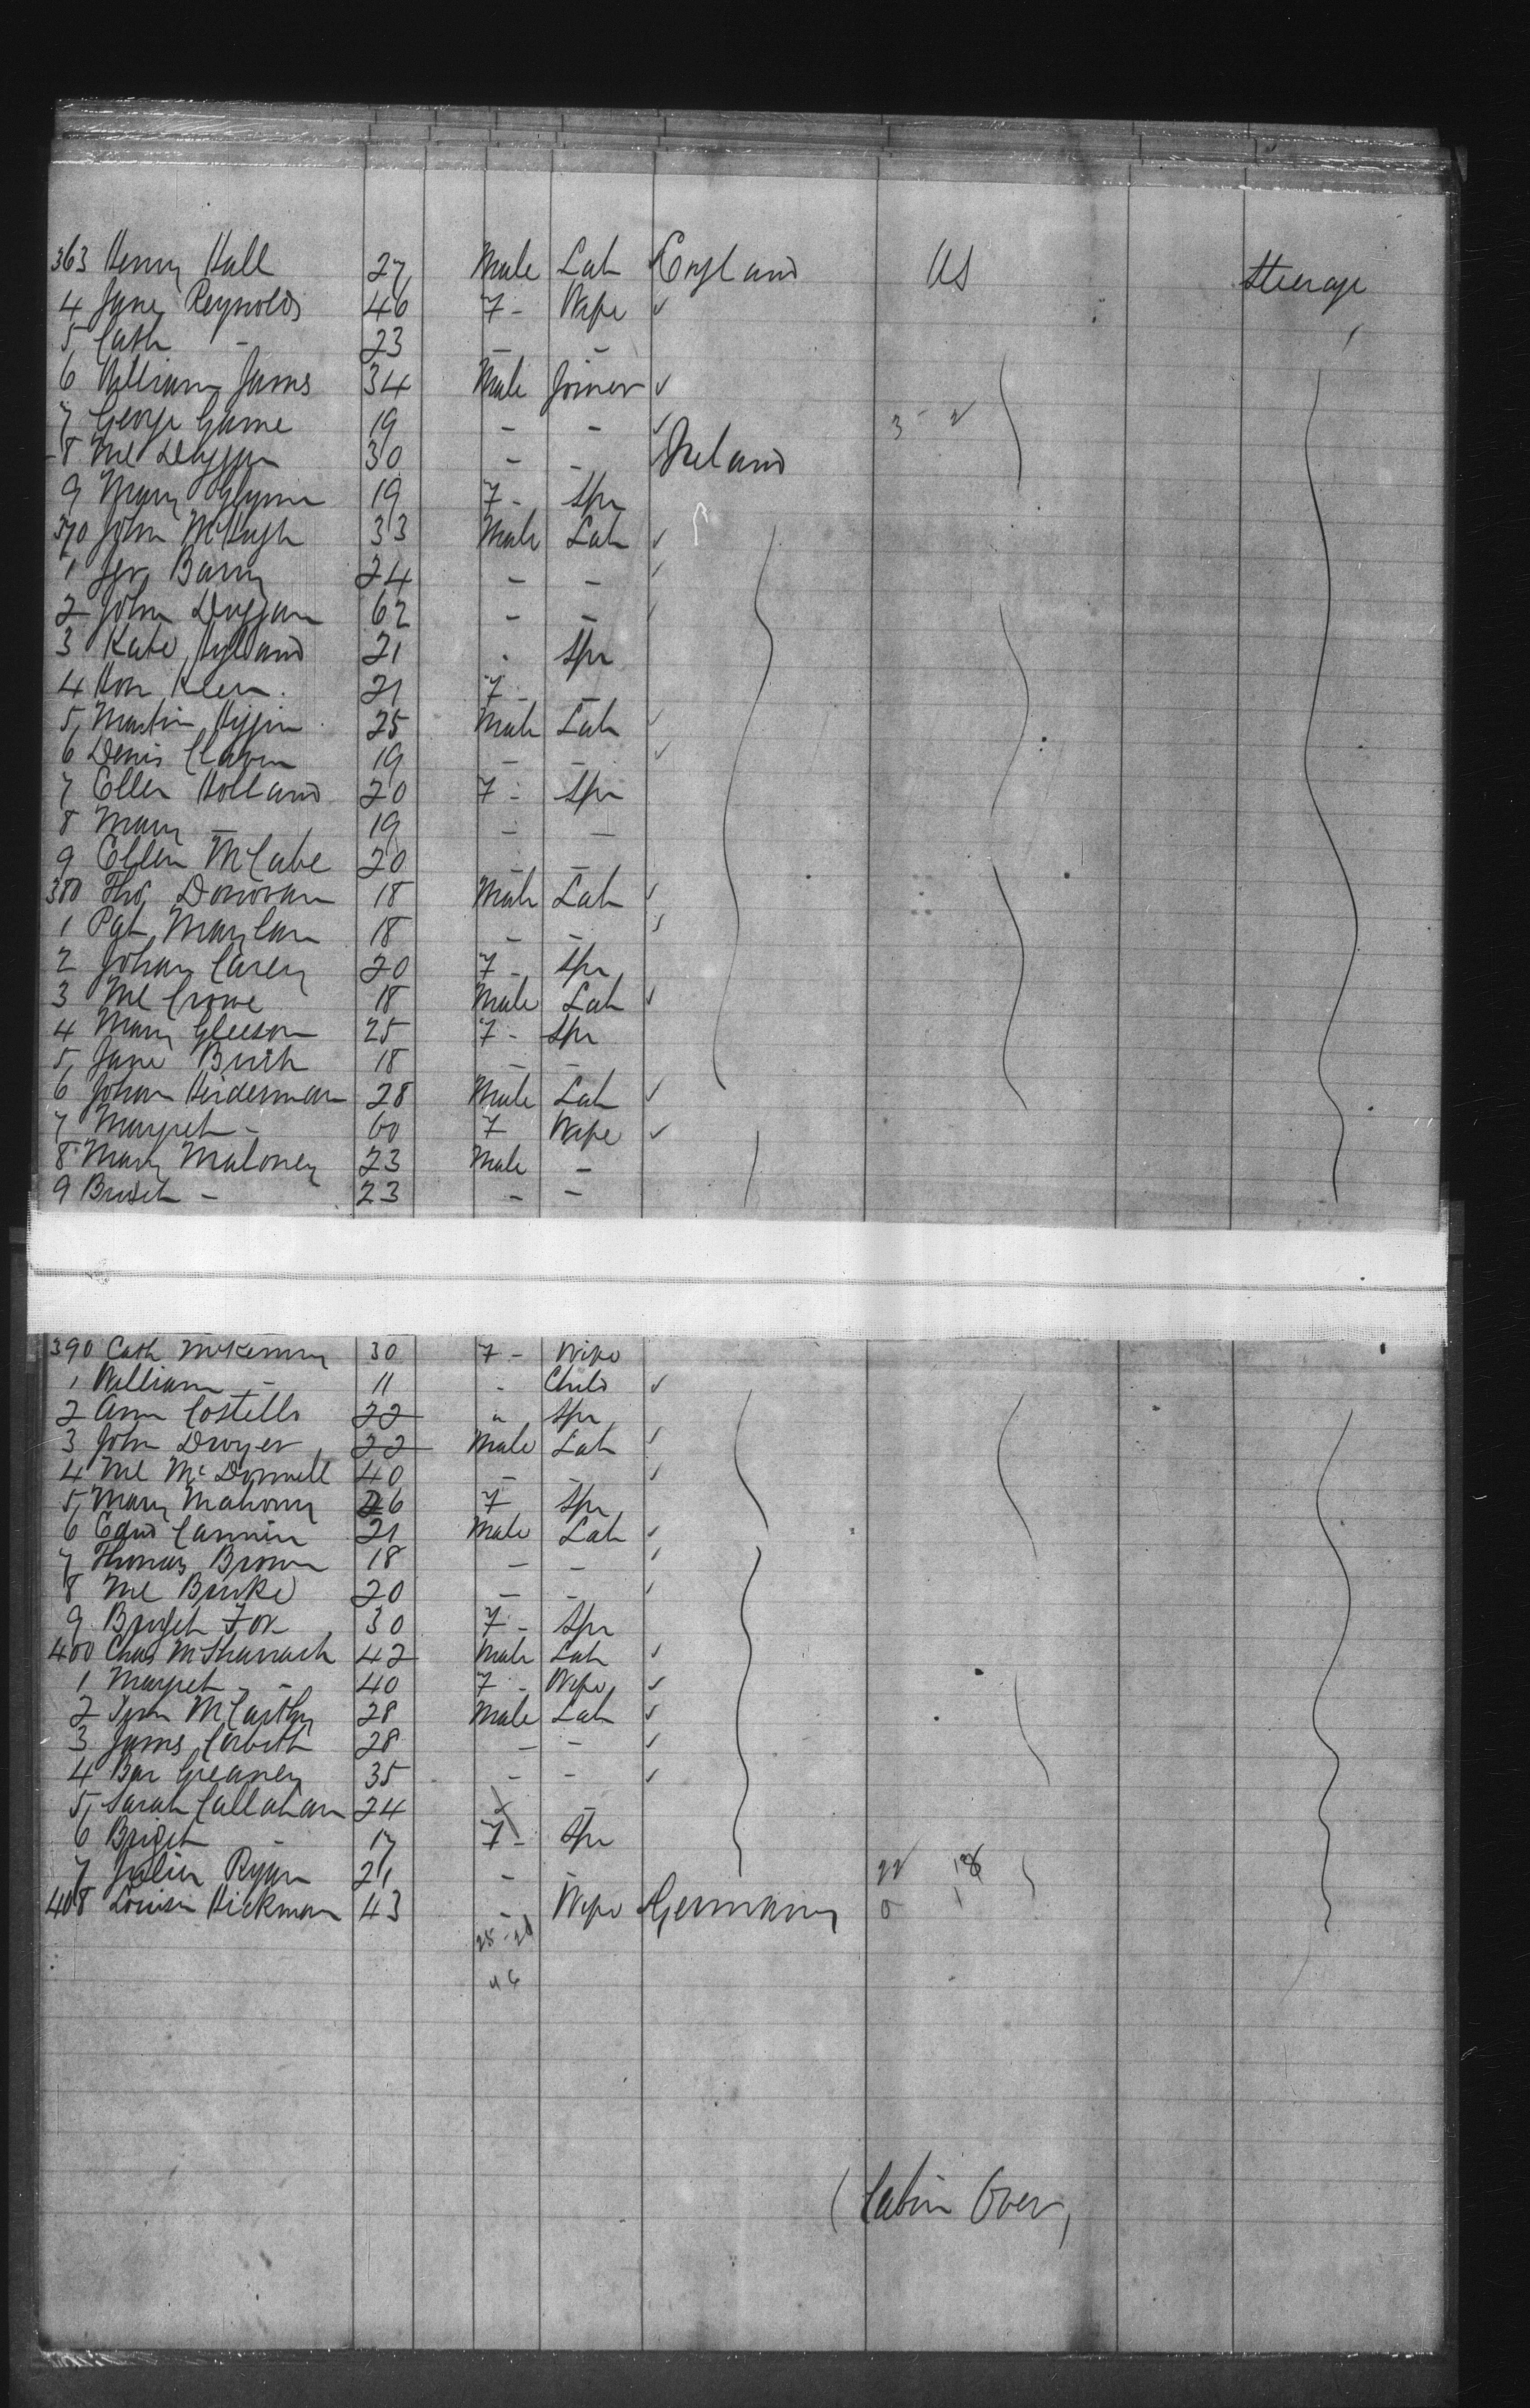 363 Henry Hall 27 Male Lab England US Steerage
4 Jane Reynolds 46 F - Wife ✓
5 Cath - 23 - -
6 William James 34 Male Joiner ✓
7 George Game 19 - - ✓ 3 - 2
8 Ml Duggan 30 - - Ireland
9 Mary Glynn 19 F - Spr
370 John McHugh 33 Male Lab ✓
1 Jer Barry 24 - - ✓
2 John Duggan 62 - - ✓
3 Kate Hyland 21 - Spr
4 Hon Kleen 21 F - -
5 Martin Higgin 25 Male Lab ✓
6 Denis Claven 19 - - ✓
7 Ellen Holland 20 F - Spr
8 Mary - 19 - -
9 Ellen McCabe 20 - -
380 Tho Donovan 18 Male Lab ✓
1 Pat 18 - - ✓
2 Johan Carey 20 F - Spr
3 Ml Crowe 18 Male Lab ✓
4 Mary Gleeson 25 F - Spr
5 Jane 18 - -
6 Johan Heiderman 28 Male Lab ✓
7 Margret - 60 F Wife ✓
8 Mary Maloney 23 Male -
9 Bridget - 23 - -
390 Cath McKenny 30 F - Wife
1 William - 11 - Child ✓
2 Ann Costello 22 " Spr
3 John Dwyer 22 Male Lab ✓
4 Ml McDonnell 40 - - ✓
5 Mary Mahony 26 F Spr
6 Edwd Cannin 21 Male Lab ✓
7 Thomas Brown 18 - - ✓
8 Ml Burke 20 - - ✓
9 Bridget Fox 30 F - Spr
400 Chas 42 Male Lab ✓
1 Margret - 40 F - Wife ✓
2 McCarthy 28 Male Lab ✓
3 James Corbett 28 - - ✓
4 Bar Greaney 35 - - ✓
5 Sarah Callahan 24 -
6 Bridget - 17 F - Spr
7 Julia Ryan 21 - - 22 18
408 Louisa Hickman 43 - Wife Germany 0 1
25-21
46
(Cabin Over)